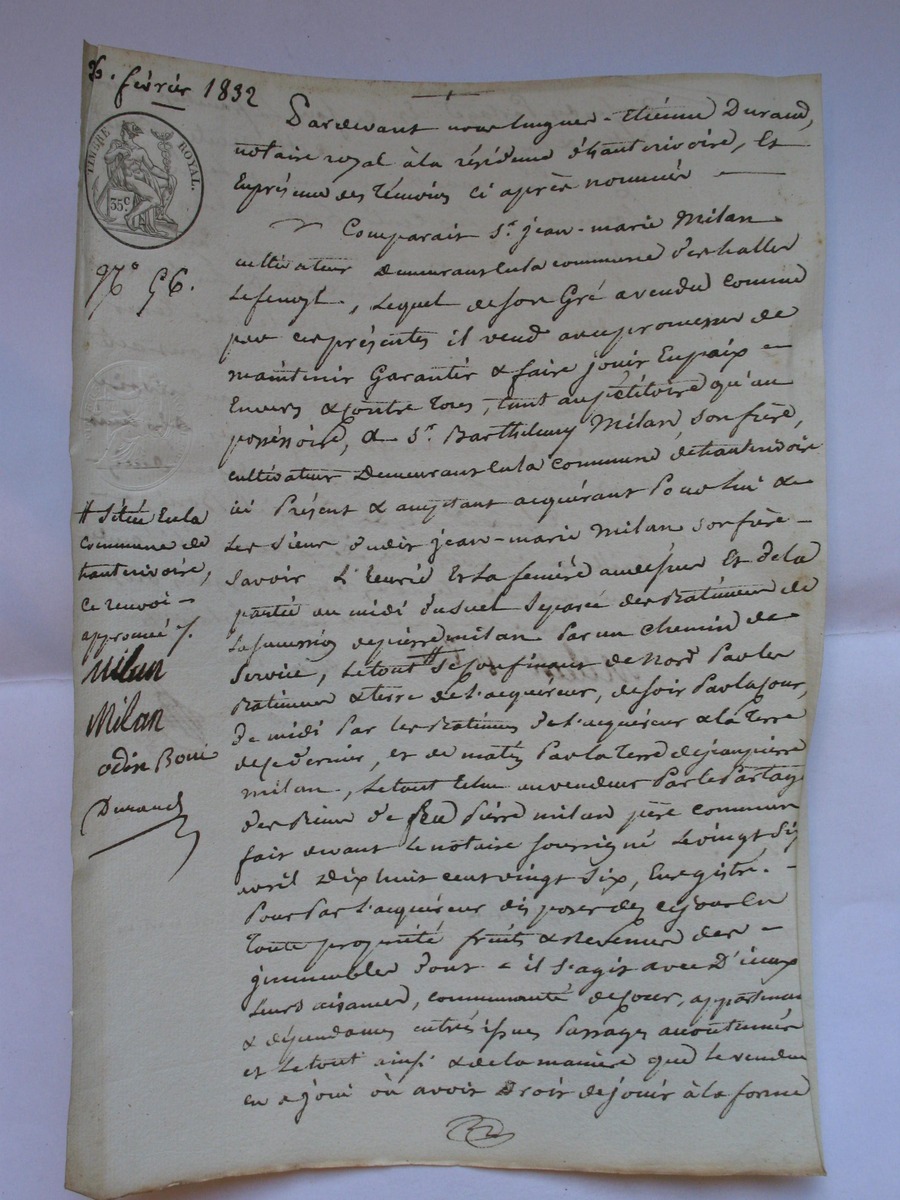 février 1832
TIMBRE ROYAL.
35c
No 56.
Pardevant nous hugues-Etiénne Durand,
notaire royal à la résidence d'hauterivoire, Et
En présence des témoins ci après nommés
Comparait Sr. jean-marie Milan
cultivateur Demeurant En la commune
, Lequel de son Gré a vendu comme
par ces présentes il vend avec promesse de
maintenir Garantir & faire jouir En paix
Envers & contre tous, tant au pétitoire qu'au
possessoire, à Sr. Barthelemy Milan son frère,
cultivateur Demeurant En la commune d'hauterivoire
ici Présent & acceptant acquérant Pour lui &
Les Siens dudit jean-marie Milan son frère
Savoir L'Ecurie Et La feniére au dessus Et de la
partie au midi Séparé des Batiments de
La succession de pierre milan Par un chemin de
Service, Le tout # Se confinant de Nord Par les
Batiments & terre de L'acquéreur, de soir Par la Cour,
De midi Par les Batiments de L'acquéreur & la Terre
de ce dernier, et de matin Par la Terre de jean pierre
milan, Le tout Echu au vendeur Par Le Partage
des Biens de feu Pierre milan père commun
fait devant Le notaire soussigné Le vingt Six
avril Dix huit cent vingt Six, Enregistré.
Pour Par L'acquéreur disposer dès ce jour En
Toute propriété fruits & revenus des
jmmeubles Dont il s'agit avec D'iceux
Leurs aisances, communauté de Cour, appartenances
& dépendances entrées issues Passages accoutumés
et Le tout ainsi & de la maniere que Le vendeur
en a joui où avoit Droit de jouir à la forme
# Située En la
Commune de
hauterivoire,
Ce renvoi
approuvé
Milan
Milan
odin Boni
Durand